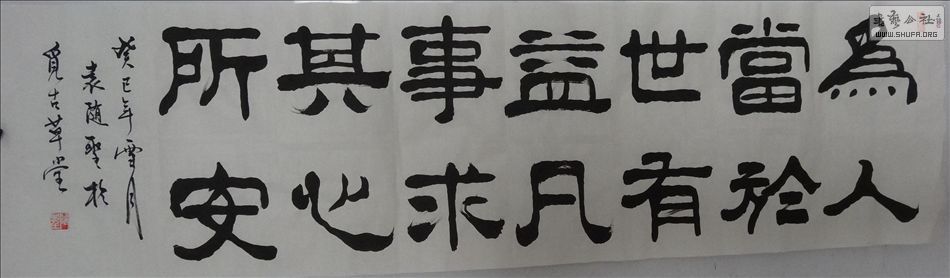 為人
當於
世有
益凡
事求
其心
所安
癸巳年雪月
袁随聖於
覓古草堂
書藝公社
WWW.SHUFA.ORG